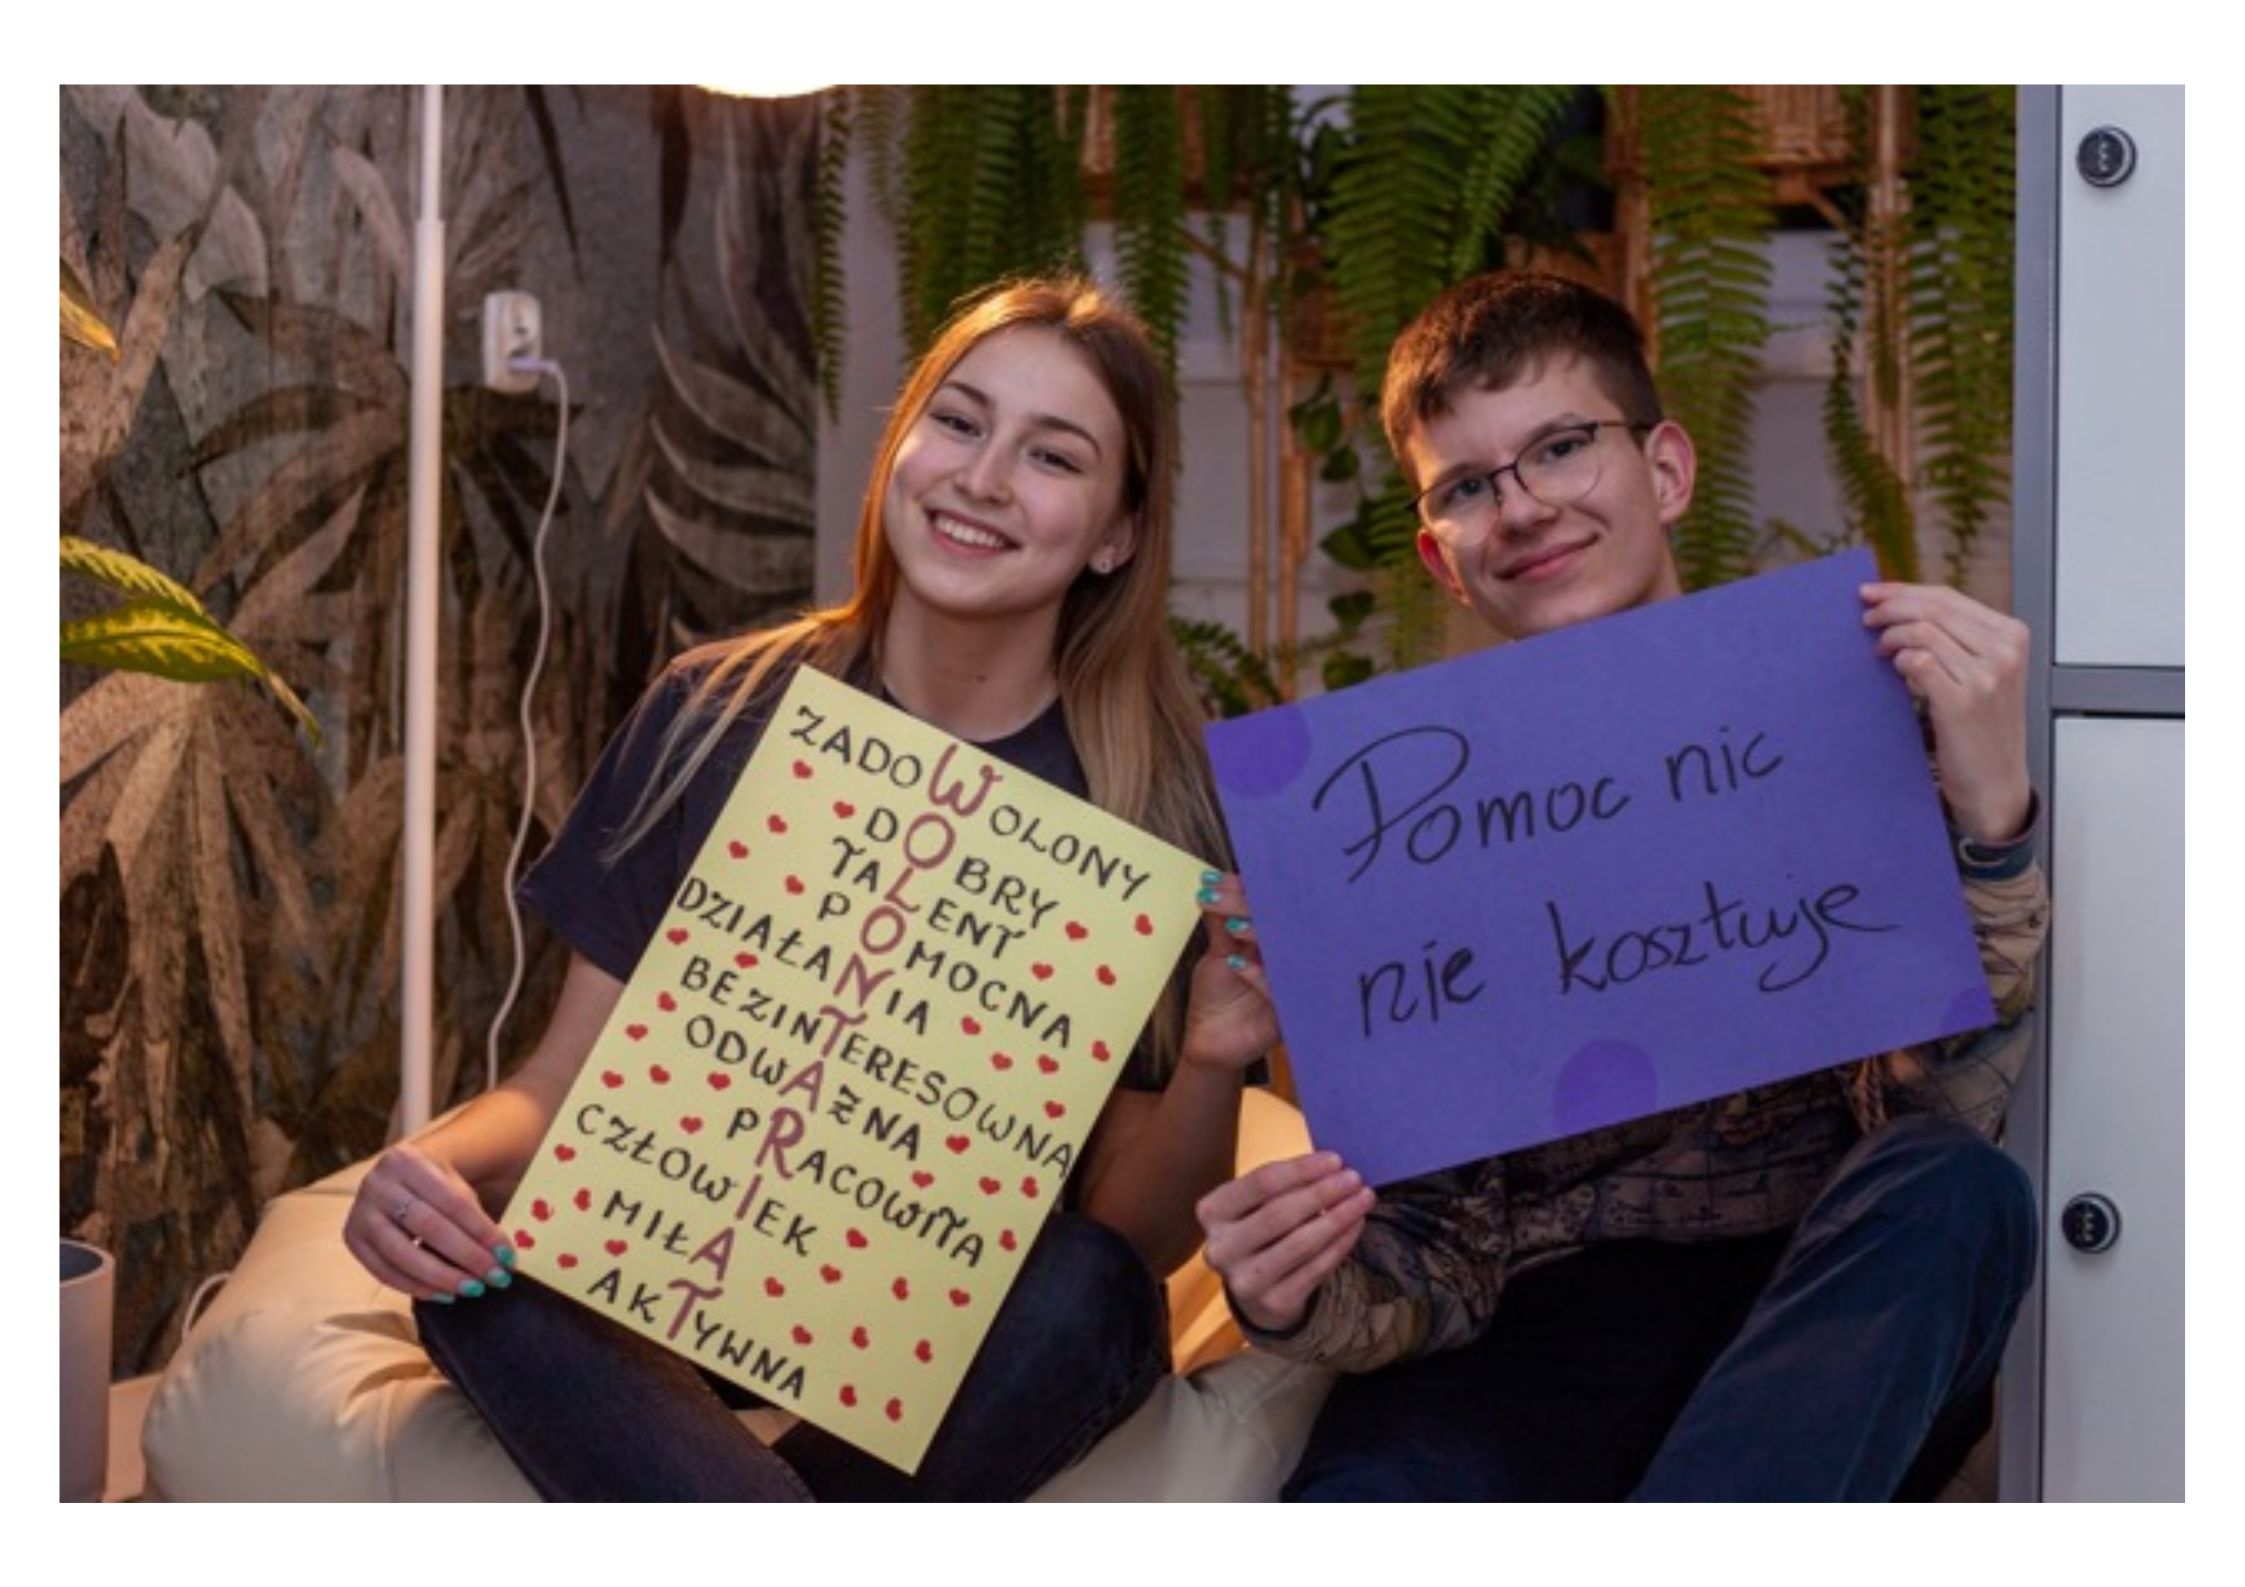 ZADOWOLONY
DOBRY
TALENT
POMOCNA
DZIAŁANIA
BEZINTERESOWNA
ODWAŻNA
PRACOWITA
CZŁOWIEK
MIŁA
AKTYWNA
Pomoc nic
nie kosztuje